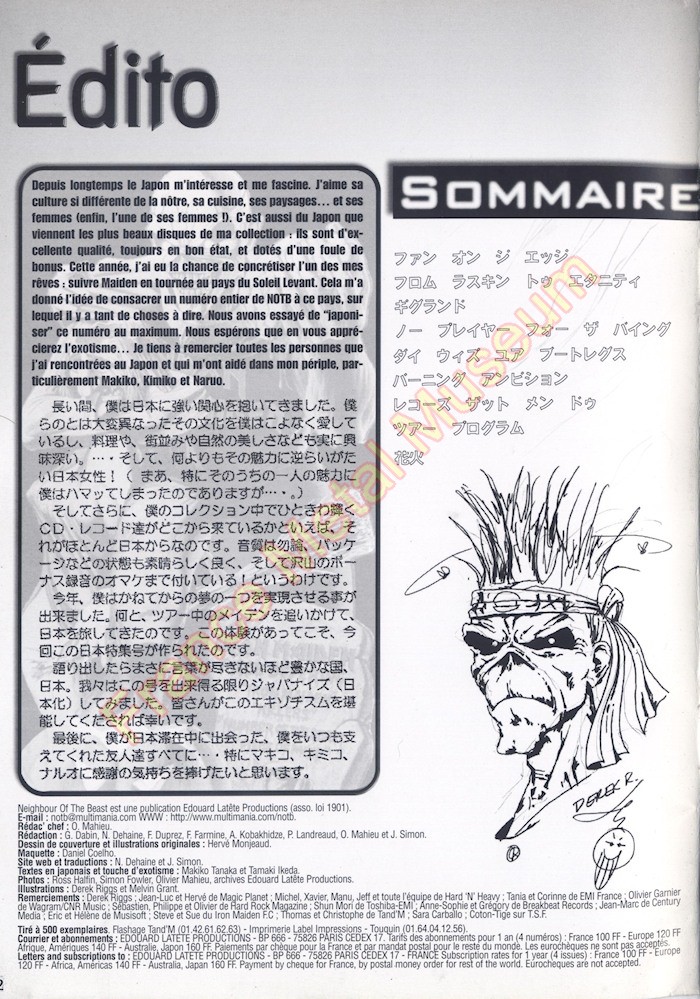 Édito
Depuis longtemps le Japon m'intéresse et me fascine. J'aime sa
culture si différente de la nôtre, sa cuisine, ses paysages... et ses
femmes (enfin, l'une de ses femmes !). C'est aussi du Japon que
viennent les plus beaux disques de ma collection : ils sont d'ex-
cellente qualité, toujours en bon état, et dotés d'une foule de
bonus. Cette année, j'ai eu la chance de concrétiser l'un des mes
rêves : suivre Maiden en tournée au pays du Soleil Levant. Cela m'a
donné l'idée de consacrer un numéro entier de NOTB à ce pays, sur
lequel il y a tant de choses à dire. Nous avons essayé de "japoni-
ser" ce numéro au maximum. Nous espérons que en vous appré-
cierez l'exotisme... Je tiens à remercier toutes les personnes que
j'ai rencontrées au Japon et qui m'ont aidé dans mon périple, par-
ticulièrement Makiko, Kimiko et Naruo.
長い間、僕は日本に強い関心を抱いてきました。僕
らのとは大変異なったその文化を僕はこよなく愛して
いるし、料理や、街並みや自然の美しさなども実に興
味深い。…・そして、何よりもその魅力に逆らいがた
い日本女性！（ まあ、特にそのうちの一人の魅力に
僕はハマッてしまったのでありますが…・。）
そしてさらに、僕のコレクション中でひときわ輝く
CD・レコード達がどこから来ているかといえば、そ
れがほとんど日本からなのです。音質は勿論、パッケ
ージなどの状態も素晴らしく良く、そして沢山のボー
ナス録音のオマケまで付いている！というわけです。
今年、僕はかねてからの夢の一つを実現させる事が
出来ました。何と、ツアー中のメイデンを追いかけて、
日本を旅してきたのです。この体験があってこそ、今
回この日本特集号が作られたのです。
語り出したらまさに言葉が尽きないほど豊かな国、
日本。我々はこの号を出来得る限りジャパナイズ（日
本化）してみました。皆さんがこのエキゾチスムを堪
能してくだされば幸いです。
最後に、僕が日本滞在中に出会った、僕をいつも支
えてくれた友人達すべてに…・特にマキコ、キミコ、
ナルオに感謝の気持ちを捧げたいと思います。
SOMMAIRE
ファン オン ジ エッジ
フロム ラスキン トゥ エタニティ
ギグランド
ノー プレイヤー フォー ザ バイング
ダイ ウィズ ユア ブートレグス
バーニング アンビション
レコーズ ザット メン ドゥ
ツアー プログラム
花火
DEREK R.
France Metal Museum
Neighbour Of The Beast est une publication Edouard Latête Productions (asso. loi 1901).
E-mail : notb@multimania.com WWW : http://www.multimania.com/notb.
Rédac' chef : O. Mahieu.
Rédaction : G. Dabin, N. Dehaine, F. Duprez, F. Farmine, A. Kobakhidze, P. Landreaud, O. Mahieu et J. Simon.
Dessin de couverture et illustrations originales : Hervé Monjeaud.
Maquette : Daniel Coelho.
Site web et traductions : N. Dehaine et J. Simon.
Textes en japonais et touche d'exotisme : Makiko Tanaka et Tamaki Ikeda.
Photos : Ross Halfin, Simon Fowler, Olivier Mahieu, archives Edouard Latête Productions.
Illustrations : Derek Riggs et Melvin Grant.
Remerciements : Derek Riggs ; Jean-Luc et Hervé de Magic Planet ; Michel, Xavier, Manu, Jeff et toute l'équipe de Hard 'N' Heavy ; Tania et Corinne de EMI France ; Olivier Garnier
de Wagram/CNR Music ; Sébastien, Philippe et Olivier de Hard Rock Magazine ; Shun Mori de Toshiba-EMI ; Anne-Sophie et Grégory de Breakbeat Records ; Jean-Marc de Century
Media ; Eric et Hélène de Musisoft ; Steve et Sue du Iron Maiden F.C ; Thomas et Christophe de Tand'M ; Sara Carballo ; Coton-Tige sur T.S.F.
Tiré à 500 exemplaires. Flashage Tand'M (01.42.61.62.63) - Imprimerie Label Impressions - Touquin (01.64.04.12.56).
Courrier et abonnements : EDOUARD LATETE PRODUCTIONS - BP 666 - 75826 PARIS CEDEX 17. Tarifs des abonnements pour 1 an (4 numéros) : France 100 FF - Europe 120 FF
Afrique, Amériques 140 FF - Australie, Japon 160 FF. Paiements par chèque pour la France et par mandat postal pour le reste du monde. Les eurochèques ne sont pas acceptés.
Letters and subscriptions to : EDOUARD LATETE PRODUCTIONS - BP 666 - 75826 PARIS CEDEX 17 - FRANCE Subscription rates for 1 year (4 issues) : France 100 FF - Europe
120 FF - Africa, Americas 140 FF - Australia, Japan 160 FF. Payment by cheque for France, by postal money order for rest of the world. Eurocheques are not accepted.
2